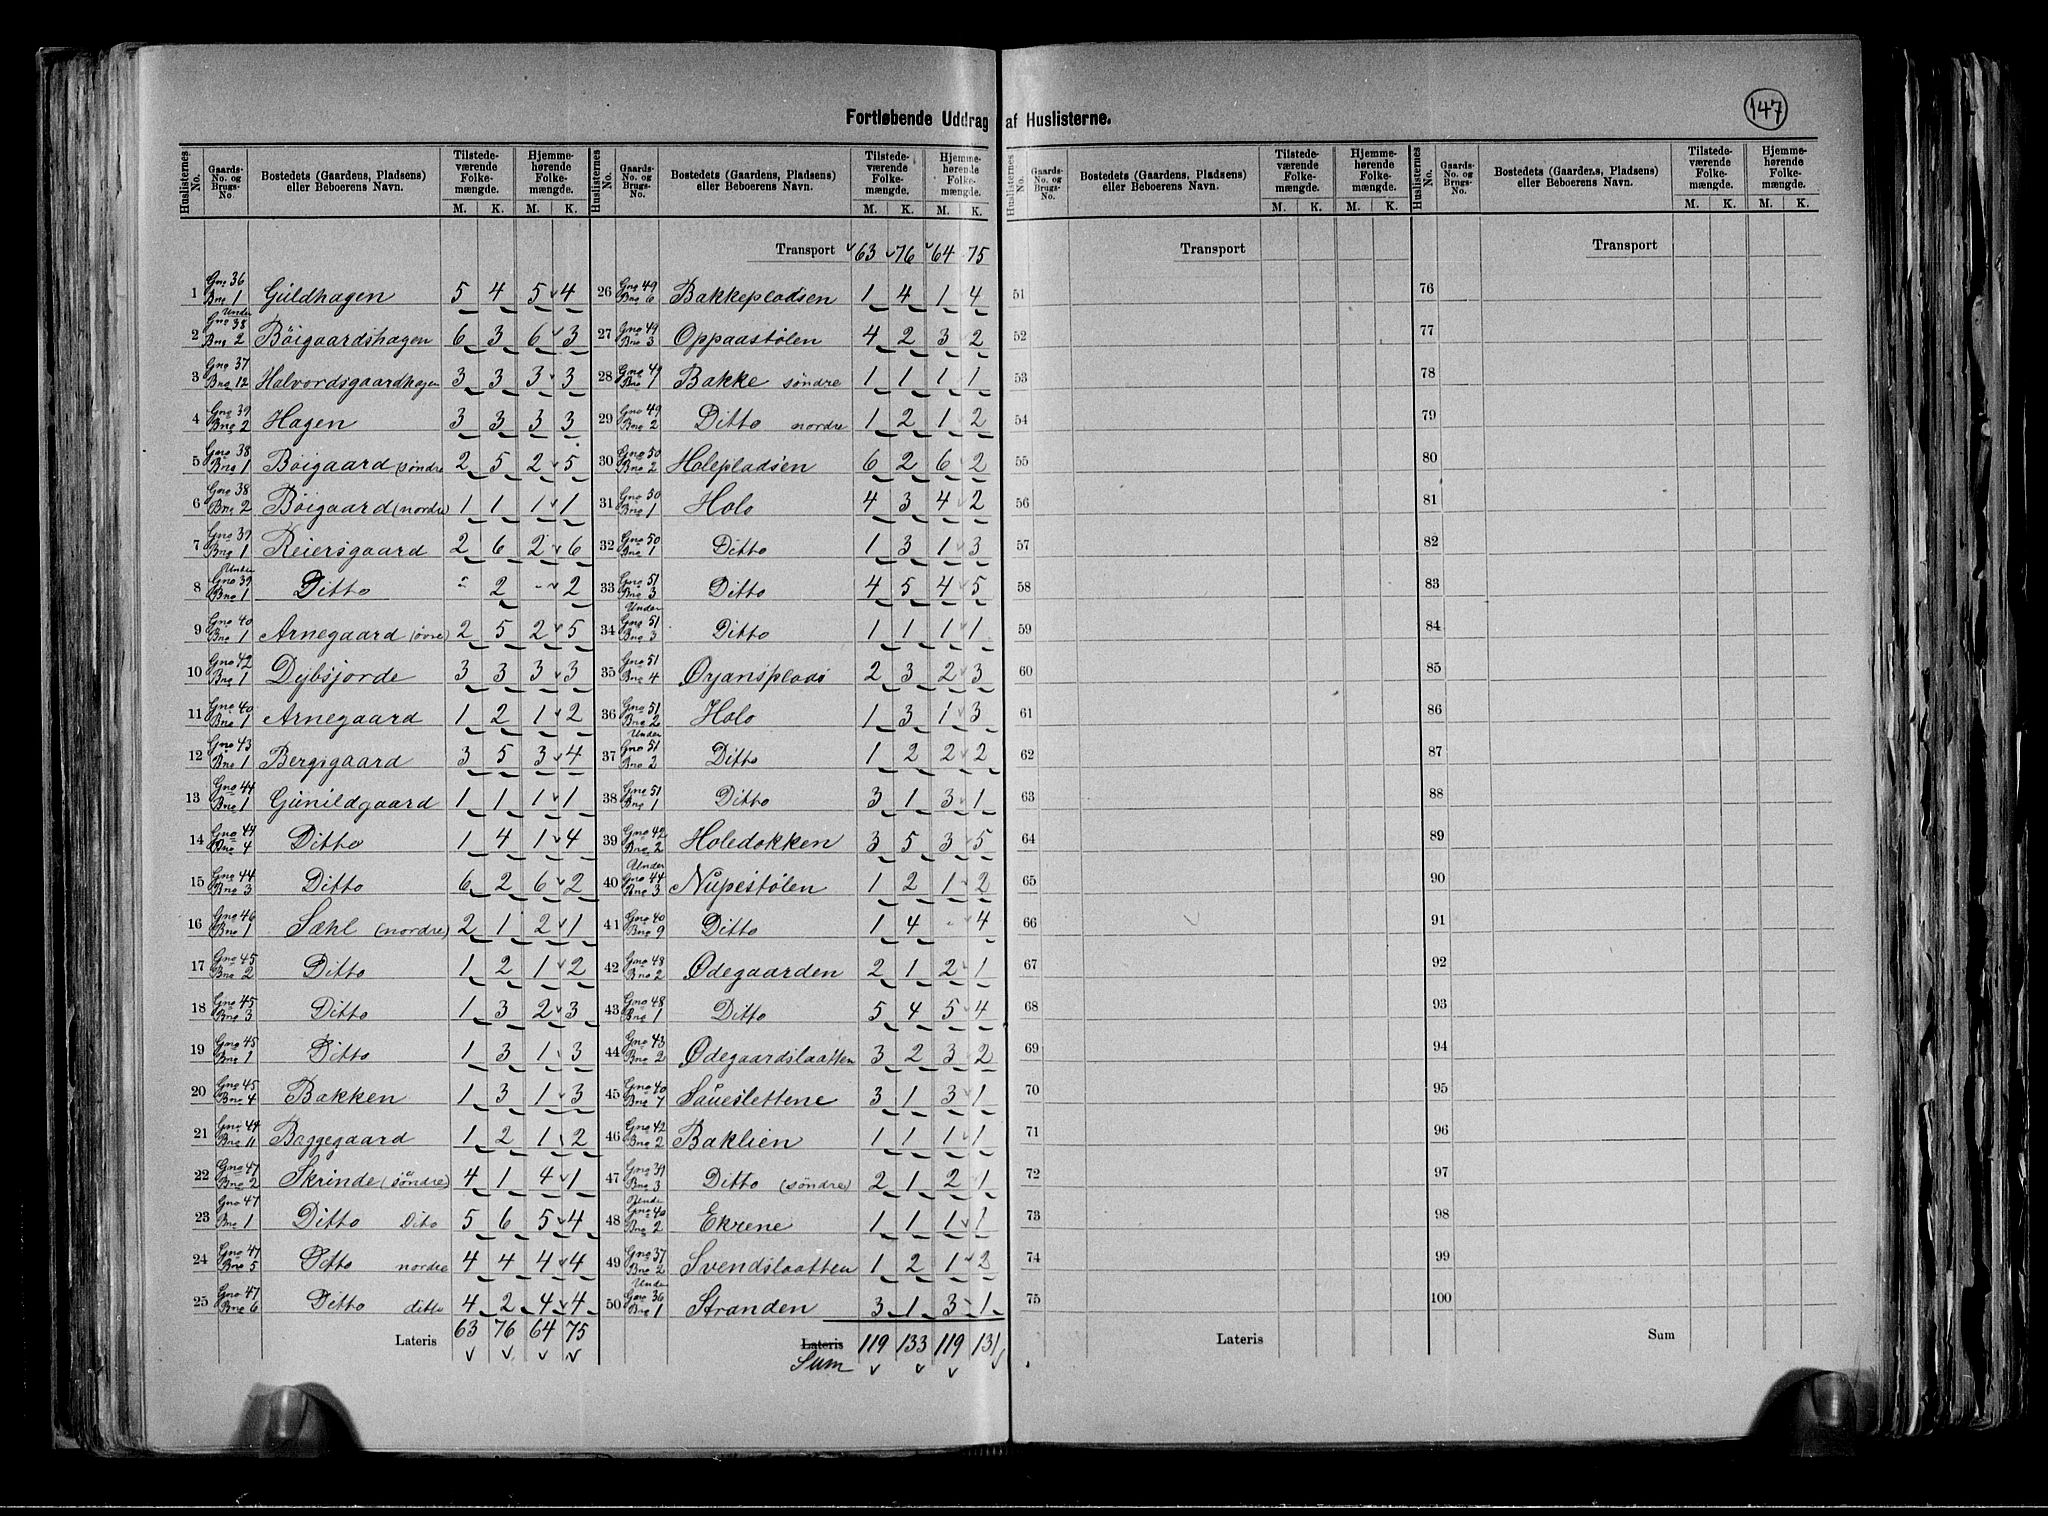 147
Fortløbende Uddrag af Huslisterne.
Huslisternes No. | Gaards-No. og Brugs-No. | Bostedets (Gaardens, Pladsens) eller Beboerens Navn. | Tilstedeværende Folkemængde. M. K. | Hjemmehørende Folkemængde. M. K.
1 Gno 36 Bno 1 Guldhagen 5 4 5 4
2 Under Gno 38 Bno 2 Böigaardshagen 6 3 6 3
3 Gno 37 Bno 12 Halvordsgaardhagen 3 3 3 3
4 Gno 39 Bno 2 Hagen 3 3 3 3
5 Gno 38 Bno 1 Böigaard (søndre 2 5 2 5
6 Gno 38 Bno 2 Böigaard (nordre) 1 1 1 1
7 Gno 39 Bno 1 Reiersgaard 2 6 2 6
8 Under Gno 39 Bno 1 Ditto - 2 - 2
9 Gno 40 Bno 1 Arnegaard (övre) 2 5 2 5
10 Gno 42 Bno 1 Dybsjorde 3 3 3 3
11 Gno 40 Bno 1 Arnegaard 1 2 1 2
12 Gno 43 Bno 1 Bergsgaard 3 5 3 4
13 Gno 44 Bno 1 Gunildgaard 1 1 1 1
14 Gno 44 Bno 4 Ditto 1 4 1 4
15 Gno 44 Bno 3 Ditto 6 2 6 2
16 Gno 46 Bno 1 Sæhl (nordre) 2 1 2 1
17 Gno 45 Bno 2 Ditto 1 2 1 2
18 Gno 45 Bno 3 Ditto 1 3 2 3
19 Gno 45 Bno 1 Ditto 1 3 1 3
20 Gno 45 Bno 4 Bakken 1 3 1 3
21 Gno 44 Bno 11 Baggegaard 1 2 1 2
22 Gno 47 Bno 2 Skrinde (söndre) 4 1 4 1
23 Gno 47 Bno 1 Ditto Dito 5 6 5 4
24 Gno 47 Bno 5 Ditto nordre 4 4 4 4
25 Gno 47 Bno 6 Ditto ditto 4 2 4 4
Lateris 63 76 64 75
Huslisternes No. | Gaards-No. og Brugs-No. | Bostedets (Gaardens, Pladsens) eller Beboerens Navn. | Tilstedeværende Folkemængde. M. K. | Hjemmehørende Folkemængde. M. K.
Transport 63 76 64 75
26 Gno 49 Bno 6 Bakkepladsen 1 4 1 4
27 Gno 49 Bno 3 Oppaastölen 4 2 3 2
28 Gno 49 Bno 1 Bakke søndre 1 1 1 1
29 Gno 49 Bno 2 Ditto nordre 1 2 1 2
30 Gno 50 Bno 2 Holepladsen 6 2 6 2
31 Gno 50 Bno 1 Holo 4 3 4 2
32 Gno 50 Bno 1 Ditto 1 3 1 3
33 Gno 51 Bno 3 Ditto 4 5 4 5
34 Under Gno 51 Bno 3 Ditto 1 1 1 1
35 Gno 51 Bno 4 Øyansplads 2 3 2 3
36 Gno 51 Bno 2 Holo 1 3 1 3
37 Under Gno 51 Bno 2 Ditto 1 2 2 2
38 Gno 51 Bno 1 Ditto 3 1 3 1
39 Gno 42 Bno 2 Holedokken 3 5 3 5
40 Under Gno 44 Bno 3 Nupestölen 1 2 1 2
41 Gno 40 Bno 9 Ditto 1 4 - 4
42 Gno 48 Bno 2 Ødegaarden 2 1 2 1
43 Gno 48 Bno 1 Ditto 5 4 5 4
44 Gno 43 Bno 2 Ødegaardslaatten 3 2 3 2
45 Gno 40 Bno 7 Saueslettene 3 1 3 1
46 Gno 42 Bno 2 Baklien 1 1 1 1
47 Gno 39 Bno 3 Ditto (söndre) 2 1 2 1
48 Unde Gno 40 Bno 2 Ekrene 1 1 1 1
49 Gno 37 Bno 2 Svendslaatten 1 2 1 2
50 Under Gno 36 Bno 1 Stranden 3 1 3 1
Lateris Sum 119 133 119 131
Huslisternes No. | Gaards-No. og Brugs-No. | Bostedets (Gaardens, Pladsens) eller Beboerens Navn. | Tilstedeværende Folkemængde. M. K. | Hjemmehørende Folkemængde. M. K.
Transport
51
52
53
54
55
56
57
58
59
60
61
62
63
64
65
66
67
68
69
70
71
72
73
74
75
Lateris
Huslisternes No. | Gaards-No. og Brugs-No. | Bostedets (Gaardens, Pladsens) eller Beboerens Navn. | Tilstedeværende Folkemængde. M. K. | Hjemmehørende Folkemængde. M. K.
Transport
76
77
78
79
80
81
82
83
84
85
86
87
88
89
90
91
92
93
94
95
96
97
98
99
100
Sum